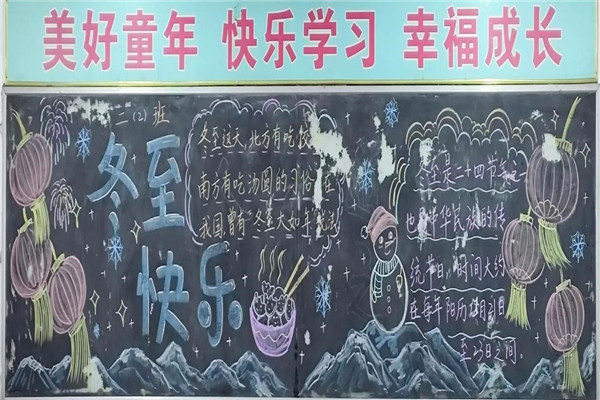 美好童年 快乐学习 幸福成长
二(2)班
冬至
快乐
冬至这天,北方有吃饺
南方有吃汤圆的习俗,在
我国曾有"冬至大如年"
冬至是二十四节气之一
也是中华民族的传
统节日,时间大约
在每年阳历12月21日
至23日之间。